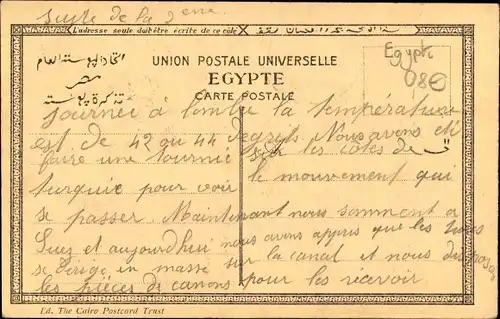 Suite de la 2eme
L'adresse seule doit être écrite de ce côté
Egypte
080
UNION POSTALE UNIVERSELLE
EGYPTE
CARTE POSTALE
اتحاد البوستة العام
مصر
تذكرة بوستة
journée à l'ombre la température
est de 42 au 44 degrets. Nous avons été
faire une tournée sur les côtes de
turquie pour voir le mouvement qui
se passer. Maintenant nous somment a
Suez et aujourdheui nous avons appris que les Turcs
se dirige en masse sur la canal et nous disposon
les pièces de canons pour les recevoir
Ed. The Cairo Postcard Trust